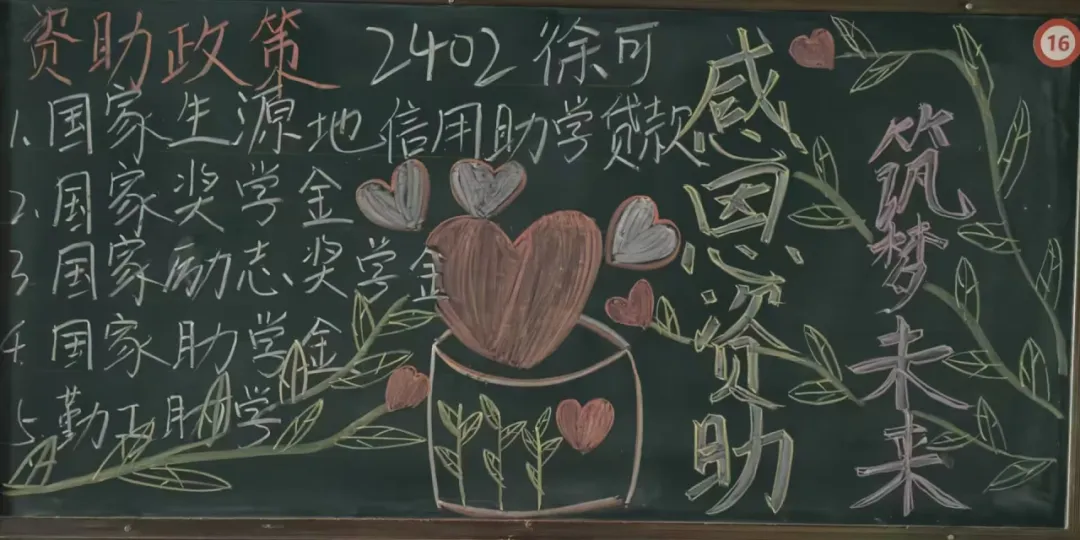 资助政策 2402 徐可
1.国家生源地信用助学贷款
2.国家奖学金
3国家励志奖学金
4.国家助学金
5.勤工助学
感恩资助
筑梦未来
16